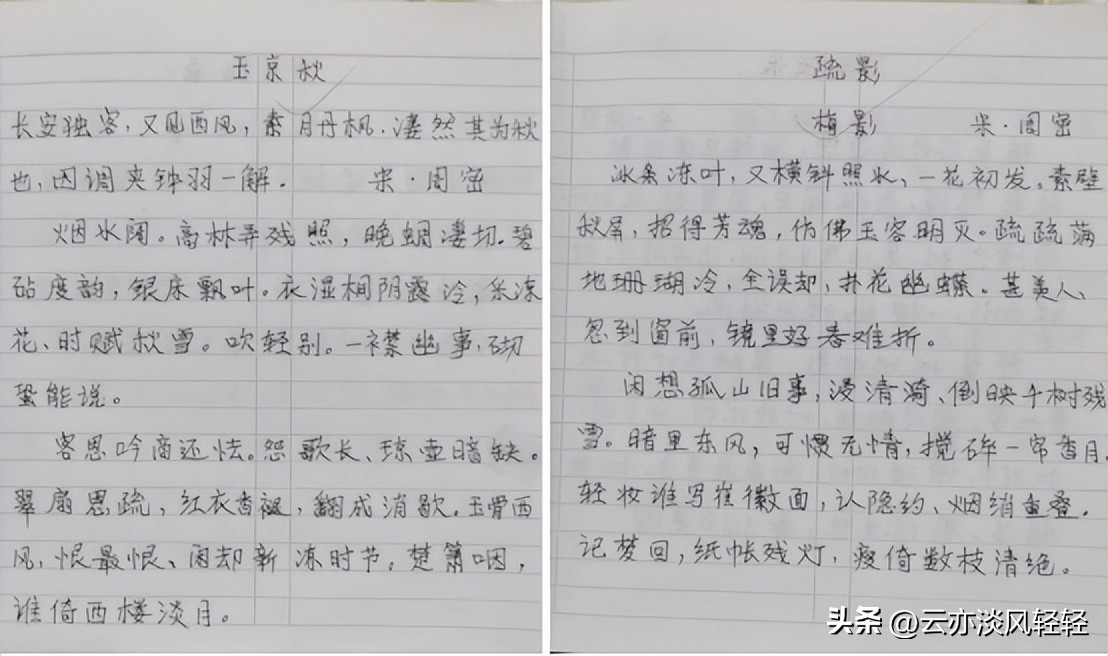 玉京秋
长安独客,又见西风,素月丹枫.凄然其为秋
也,因调夹钟羽一解. 宋·周密
烟水阔。高林弄残照,晚蜩凄切.碧
砧度韵,银床飘叶。衣湿桐阴露冷,采凉
花、时赋秋雪。叹轻别。一襟幽事,砌
蛩能说。
客思吟商还怯。怨歌长、琼壶暗缺。
翠扇恩疏,红衣香褪,翻成消歇.玉骨西
风,恨最恨、闲却新凉时节,楚箫咽,
谁倚西楼淡月。
疏影
梅影 宋·周密
冰条冻叶,又横斜照水、一花初发,素壁
秋屏,招得芳魂,仿佛玉容明灭。疏疏满
地珊瑚冷,全误却,扑花幽蝶。甚美人、
忽到窗前,镜里好春难折。
闲想孤山旧事,浸清漪、倒映千树残
雪。暗里东风,可惯无情,搅碎一帘香月.
轻妆谁写崔徽面,认隐约、烟绡重叠.
记梦回,纸帐残灯,瘦倚数枝清绝。
头条 @云亦淡风轻轻